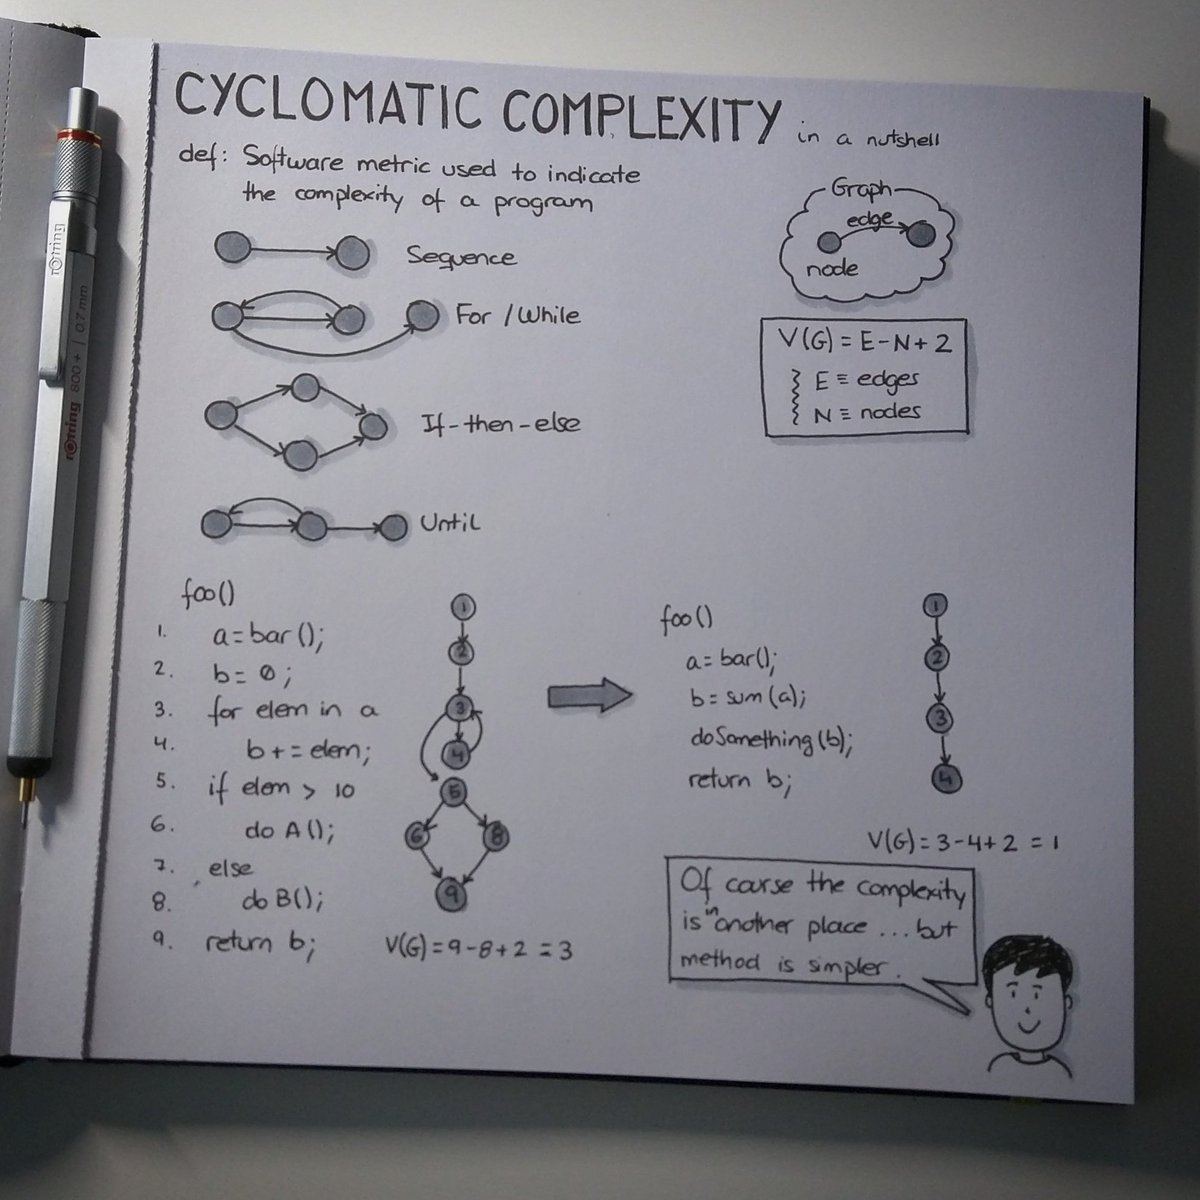 CYCLOMATIC COMPLEXITY in a nutshell
def: Software metric used to indicate
the complexity of a program
Sequence
For / While
If-then-else
Until
Graph
edge
node
V(G) = E-N+2
E ≡ edges
N ≡ nodes
foo()
1. a=bar();
2. b= 0;
3. for elem in a
4. b+=elem;
5. if elem > 10
6. do A();
7. else
8. do B();
9. return b;
1
2
3
4
5
6
8
9
V(G)=9-8+2 = 3
foo()
a=bar();
b=sum(a);
doSomething(b);
return b;
1
2
3
4
V(G)=3-4+2 = 1
Of course the complexity
is in another place ... but
method is simpler.
rotring
rotring 800+ | 0.7 mm